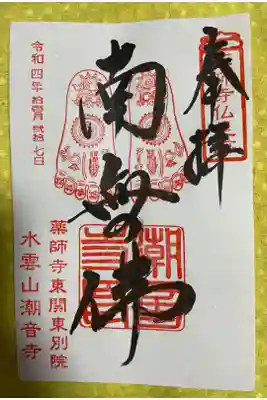 奉拝
南無佛
薬師寺東関東別院
水雲山潮音寺
令和四年拾月貳拾七日